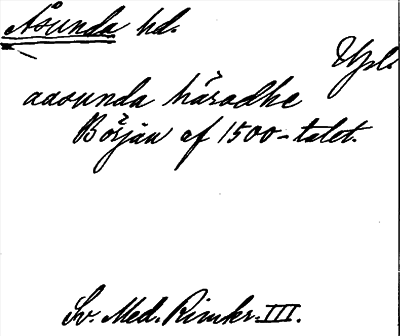 Åsunda hd.
Upl.
aasunda häradhe
Början af 1500-talet.
Sv. Med. Rimkr. III.